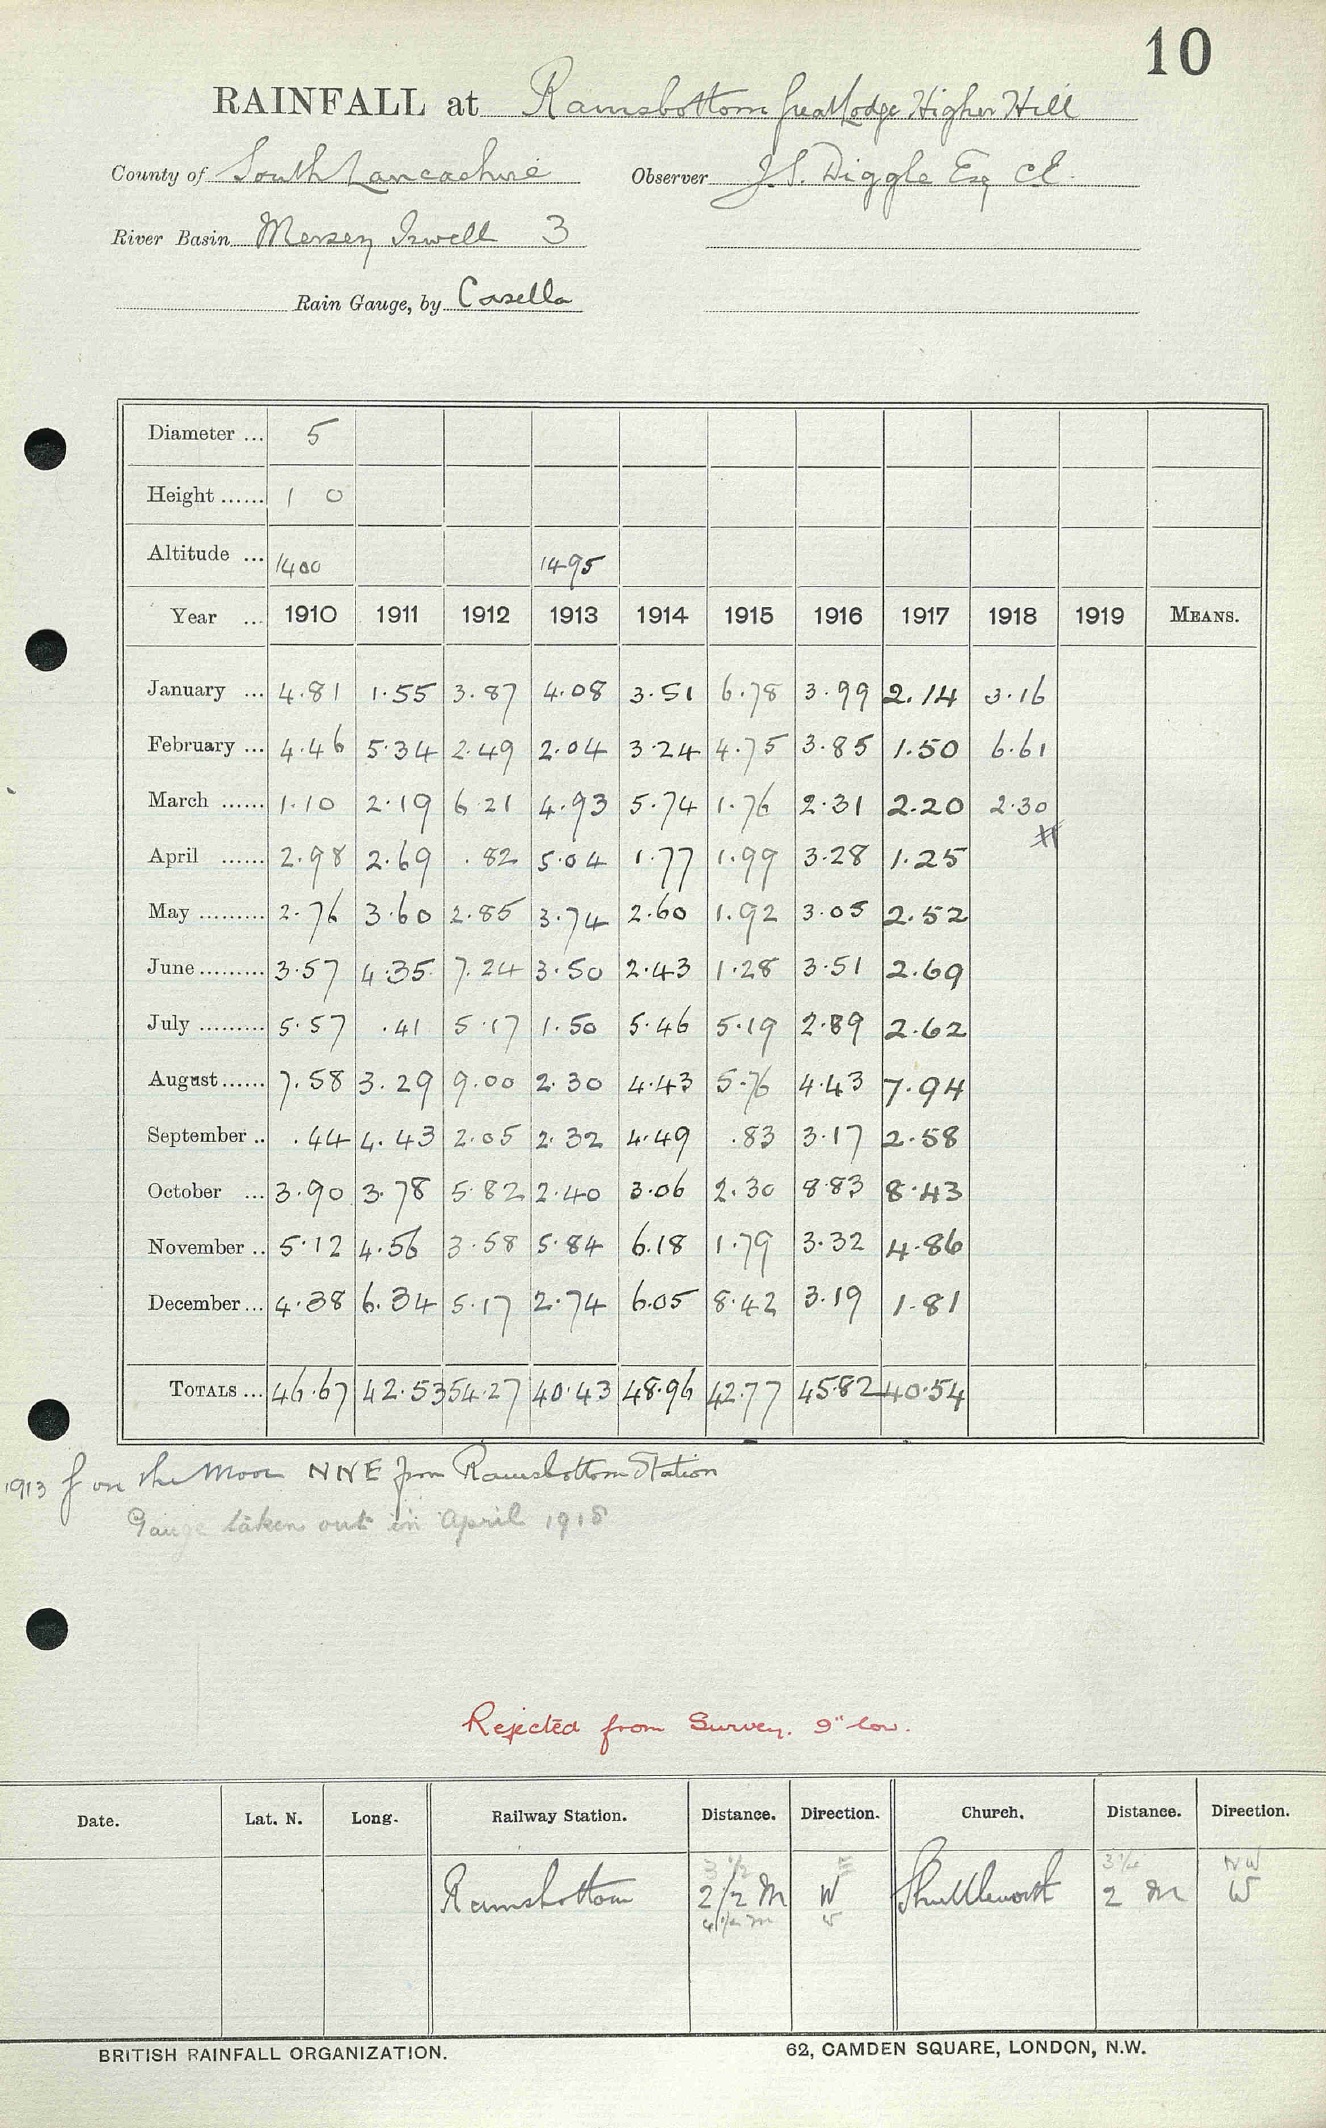 10
RAINFALL at Ramsbottom Great Lodge Higher Hill
County of South Lancashire Observer J.S. Diggle Esq CE.
River Basin Mersey Irwell 3
Rain Gauge, by Casella
Diameter ... 5
Height ...... 1 0
Altitude ... 1400 1495
Year ... 1910 1911 1912 1913 1914 1915 1916 1917 1918 1919 MEANS.
January ... 4.81 1.55 3.87 4.08 3.51 6.78 3.99 2.14 3.16
February ... 4.46 5.34 2.49 2.04 3.24 4.75 3.85 1.50 6.61
March ...... 1.10 2.19 6.21 4.93 5.74 1.76 2.31 2.20 2.30
April ...... 2.98 2.69 .82 5.04 1.77 1.99 3.28 1.25
May ......... 2.76 3.60 2.85 3.74 2.60 1.92 3.05 2.52
June ......... 3.57 4.35 7.24 3.50 2.43 1.28 3.51 2.69
July ......... 5.57 .41 5.17 1.50 5.46 5.19 2.89 2.62
August ...... 7.58 3.29 9.00 2.30 4.43 5.76 4.43 7.94
September .. .44 4.43 2.05 2.32 4.49 .83 3.17 2.58
October ... 3.90 3.78 5.82 2.40 3.06 2.30 8.83 8.43
November .. 5.12 4.56 3.58 5.84 6.18 1.79 3.32 4.86
December ... 4.38 6.34 5.17 2.74 6.05 8.42 3.19 1.81
TOTALS ... 46.67 42.53 54.27 40.43 48.96 42.77 45.82 40.54
1913 f on the Moor NNE from Ramsbottom Station
Gauge taken out in April 1918
Rejected from Survey. 9" low.
Date. Lat. N. Long. Railway Station. Distance. Direction. Church. Distance. Direction.
3 1/2 E 3 1/4 NW
Ramsbottom 2 1/2 M W Shuttleworth 2 M W
W
BRITISH RAINFALL ORGANIZATION. 62, CAMDEN SQUARE, LONDON, N.W.